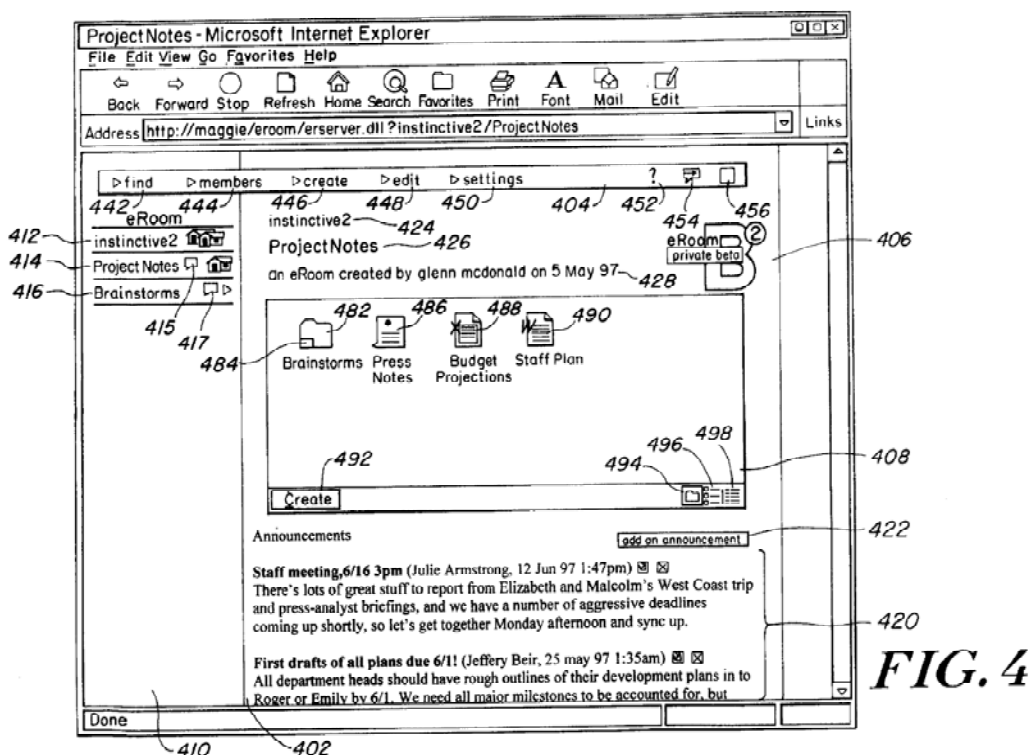 ProjectNotes - Microsoft Internet Explorer
File Edit View Go Favorites Help
Back Forward Stop Refresh Home Search Favorites Print Font Mail Edit
Address http://maggie/eroom/erserver.dll?instinctive2/ProjectNotes Links
find members create edit settings ?
442 444 446 448 450 404 452 454 456
eRoom
412 instinctive2
414 ProjectNotes
416 Brainstorms
415 417
instinctive2 424
ProjectNotes 426
an eRoom created by glenn mcdonald on 5 May 97 428
eRoom B 2
private beta
406
482 486 488 490
484
X W
Brainstorms Press Notes Budget Projections Staff Plan
492 494 496 498 408
Create
Announcements add an announcement 422
Staff meeting,6/16 3pm (Julie Armstrong, 12 Jun 97 1:47pm)
There's lots of great stuff to report from Elizabeth and Malcolm's West Coast trip
and press-analyst briefings, and we have a number of aggressive deadlines
coming up shortly, so let's get together Monday afternoon and sync up.
420
First drafts of all plans due 6/1! (Jeffery Beir, 25 may 97 1:35am)
All department heads should have rough outlines of their development plans in to
Roger or Emily by 6/1. We need all major milestones to be accounted for, but
Done
410 402
FIG. 4